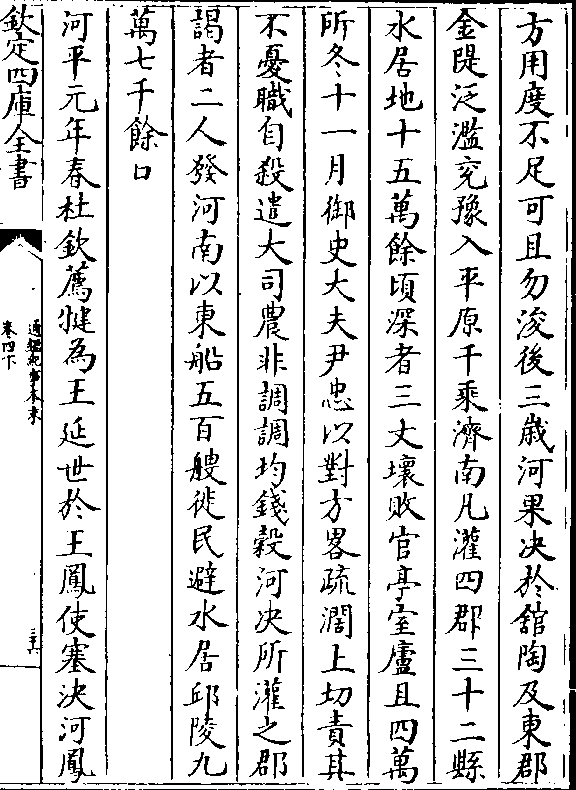 方用度不足可且勿浚後三歲河果决於舘陶及東郡
金隄泛濫兖豫入平原千乘濟南凡灌四郡三十二縣
水居地十五萬餘頃深者三丈壞敗官亭室廬且四萬
所冬十一月御史大夫尹忠以對方畧疏濶上切責其
不憂職自殺遣大司農非調調均錢穀河决所灌之郡
謁者二人發河南以東船五百艘徙民避水居邱陵九
萬七千餘口
河平元年春杜欽薦犍為王延世於王鳳使塞决河鳳
欽定四庫全書
通鑑紀事本末
卷四下